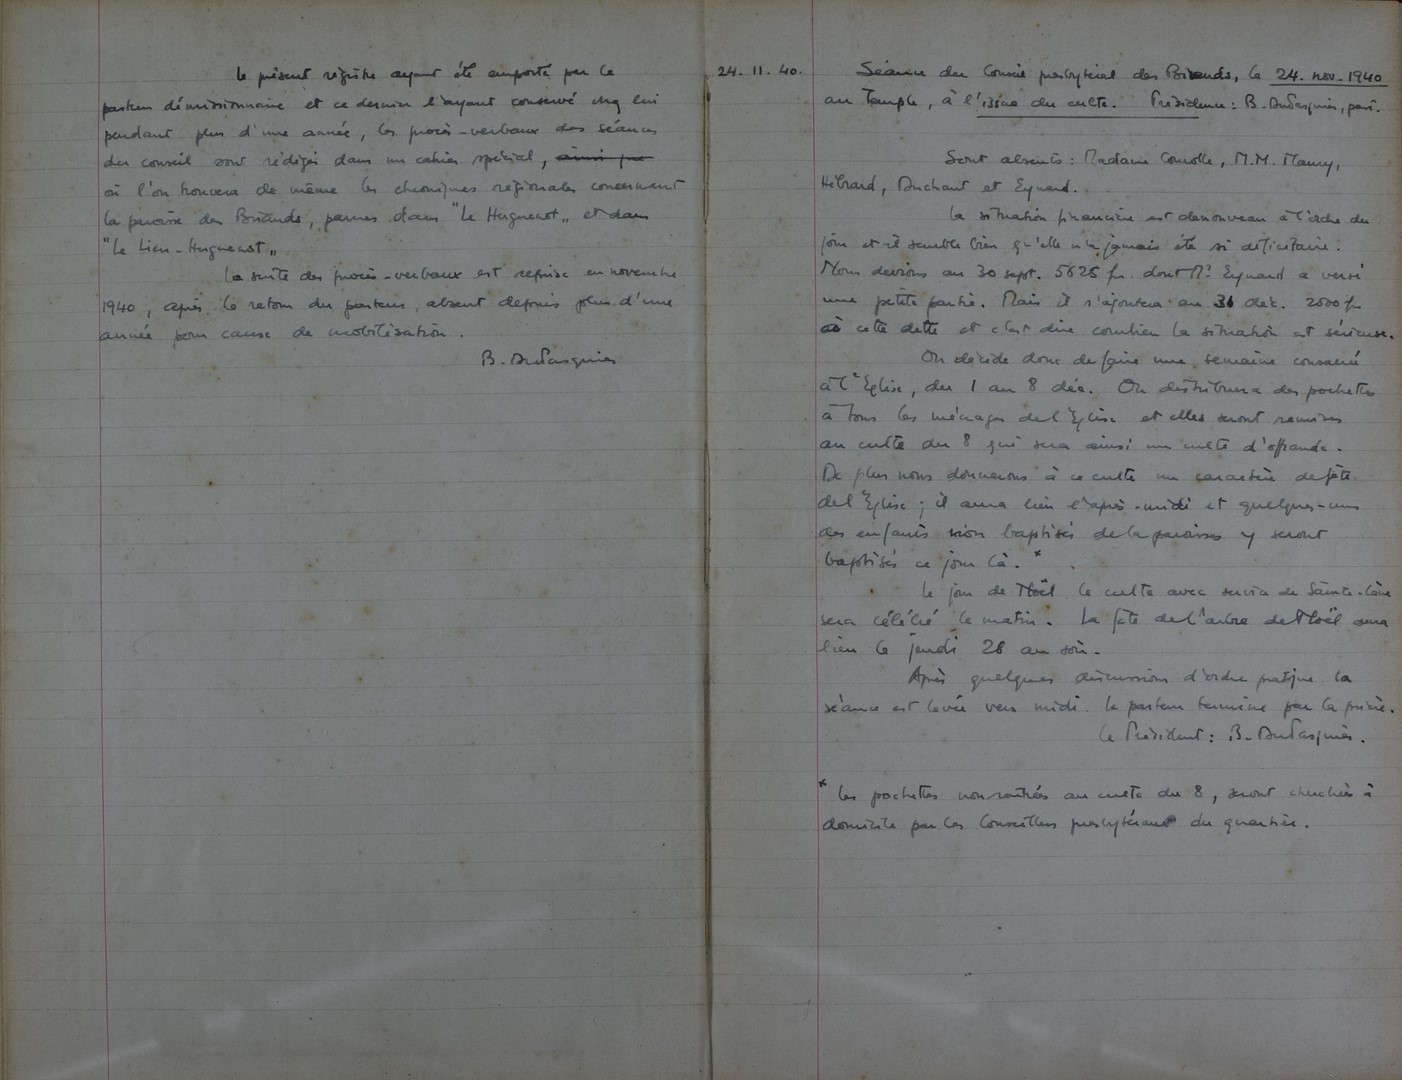 Le présent registre ayant été emporté par le
pasteur démissionnaire et ce dernier l'ayant conservé chez lui
pendant plus d'une année, les procès-verbaux des séances
du conseil sont rédigés dans un cahier spécial, ainsi que
où l'on trouvera de même les chroniques régionales concernant
la paroisse des Briands, parues dans "Le Huguenot" et dans
"Le Lien-Huguenot"
La suite des procès-verbaux est reprise en novembre
1940, après le retour du pasteur, absent depuis plus d'une
année pour cause de mobilisation.
B. DuPasquier
24. 11. 40.
Séance du Conseil presbytéral des Briands, le 24. nov. 1940
au Temple, à l'issue du culte. Présidence: B. DuPasquier, past.
Sont absents: Madame M.M. Mamy,
Hébrard, Duchant et Eynard.
La situation financière est de nouveau à l'ordre du
jour et il semble bien qu'elle n'a jamais été si déficitaire.
Nous devions au 30 sept. 5625 fr. dont Mr Eynard a versé
une petite partie. Mais il s'ajoutera au 31 déc. 2000 fr
à cette dette et c'est dire combien la situation est sérieuse.
On décide donc de faire une semaine consacrée
à l'Eglise, du 1 au 8 déc. On distribuera des pochettes
à tous les ménages de l'Eglise et elles seront remises
au culte du 8 qui sera ainsi un culte d'offrande.
De plus nous donnerons à ce culte un caractère de fête
de l'Eglise; il aura lieu l'après-midi et quelques-uns
des enfants non baptisés de la paroisse y seront
baptisés ce jour là. *
Le jour de Noël le culte avec service de Sainte-Cène
sera célébré le matin. La fête de l'arbre de Noël aura
lieu le jeudi 28 au soir.
Après quelques discussions d'ordre pratique la
séance est levée vers midi. Le pasteur termine par la prière.
Le Président: B. DuPasquier.
* Les pochettes non rentrées au culte du 8, seront cherchées à
domicile par les Conseillers presbytéraux du quartier.